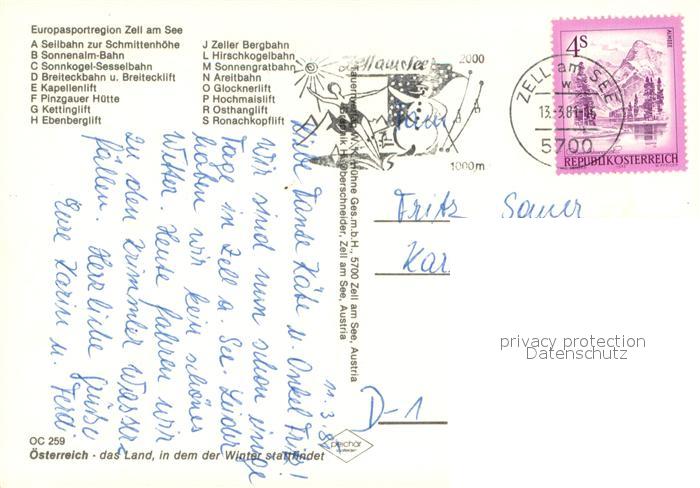 Europasportregion Zell am See
A Seilbahn zur Schmittenhöhe
B Sonnenalm-Bahn
C Sonnkogel-Sesselbahn
D Breiteckbahn u. Breitecklift
E Kapellenlift
F Pinzgauer Hütte
G Kettinglift
H Ebenberglift
J Zeller Bergbahn
L Hirschkogelbahn
M Sonnengratbahn
N Areitbahn
O Glocknerlift
P Hochmaislift
R Osthanglift
S Ronachkopflift
Zell am See
2000
1000m
ZELL am SEE
13.-3.81-16
5700
4s
ALMSEE
REPUBLIK ÖSTERREICH
11.3.81
Liebe Tante Käte u. Onkel Fritz!
Wir sind nun schon einige
Tage in Zell a. See. Leider
haben wir kein schönes
Wetter. Heute fahren wir
zu den Krimmler Wasser-
fällen. Herzliche Grüße
Eure Karin u. Ferdi.
Hühne Ges.m.b.H., 5700 Zell am See, Austria
Oberschneider, Zell am See, Austria
Fam
Fritz Sauer
Kar
D-1
privacy protection
Datenschutz
OC 259
Österreich - das Land, in dem der Winter stattfindet